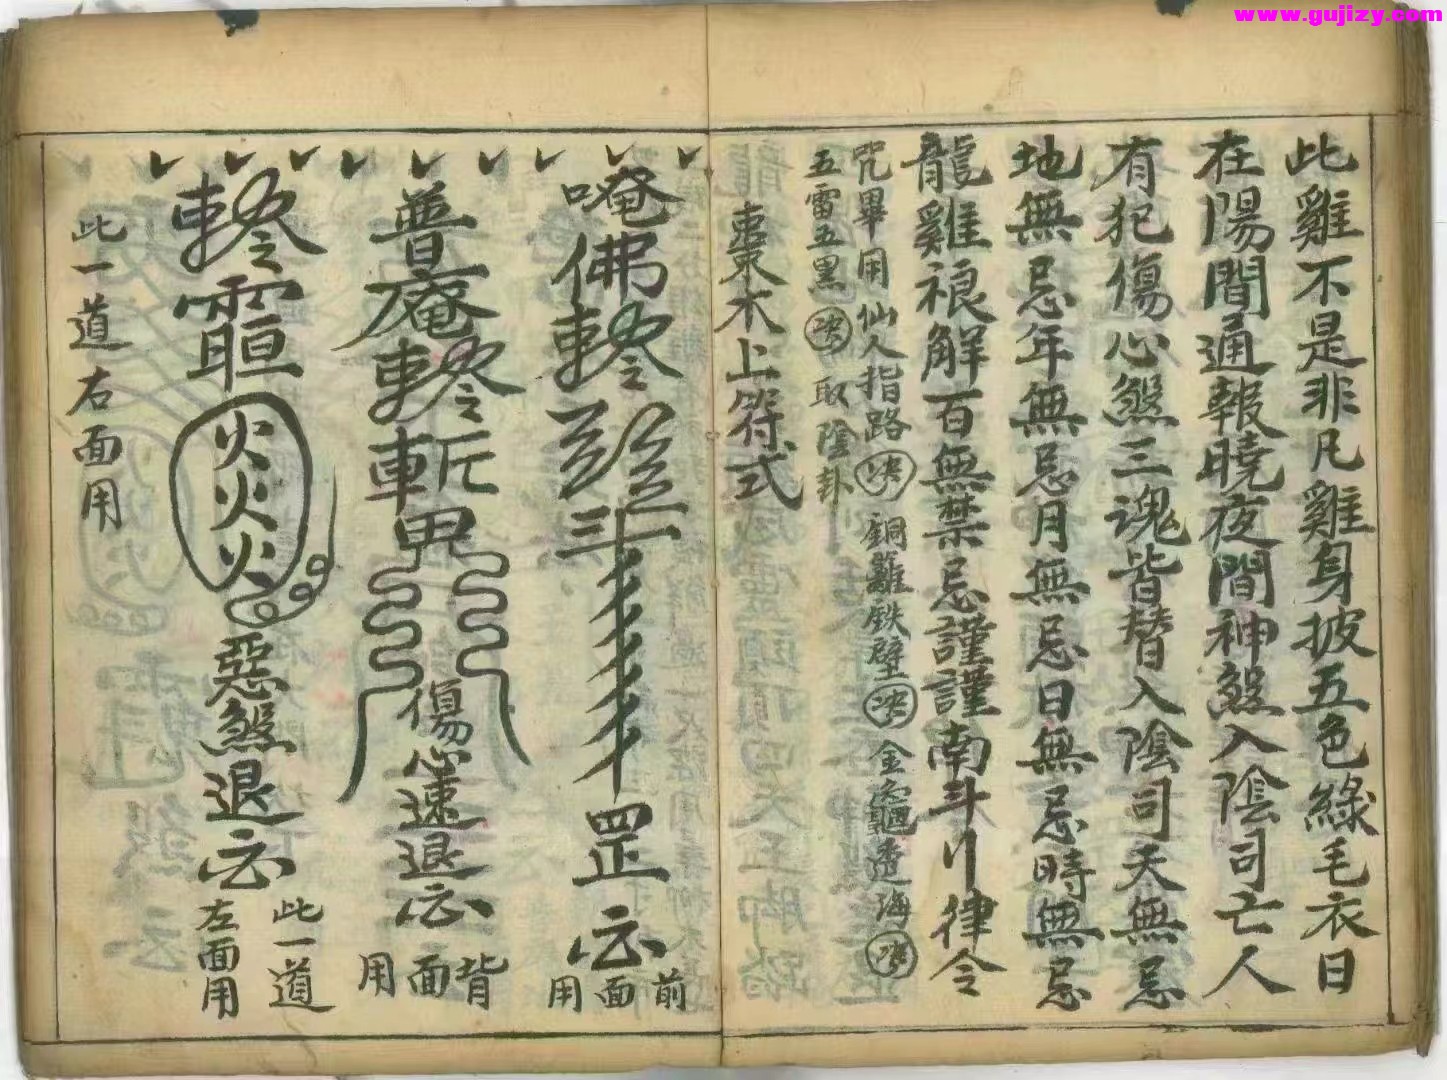 www.gujizy.com
此雞不是非凡雞身披五色綠毛衣日
在陽間通報曉夜間神煞入陰司亡人
有犯傷心煞三魂皆替入陰司天無忌
地無忌年無忌月無忌日無忌時無忌
龍雞禓解百無禁忌謹謹南斗律令
咒畢用仙人指路 銅籬鉄壁 金龜遊海
五雷五黑 取陰卦
棗木上符式
唵佛 罡
前面用
普庵 斬 傷心速退
背面用
火火火惡煞退
此一道
左面用
此一道右面用